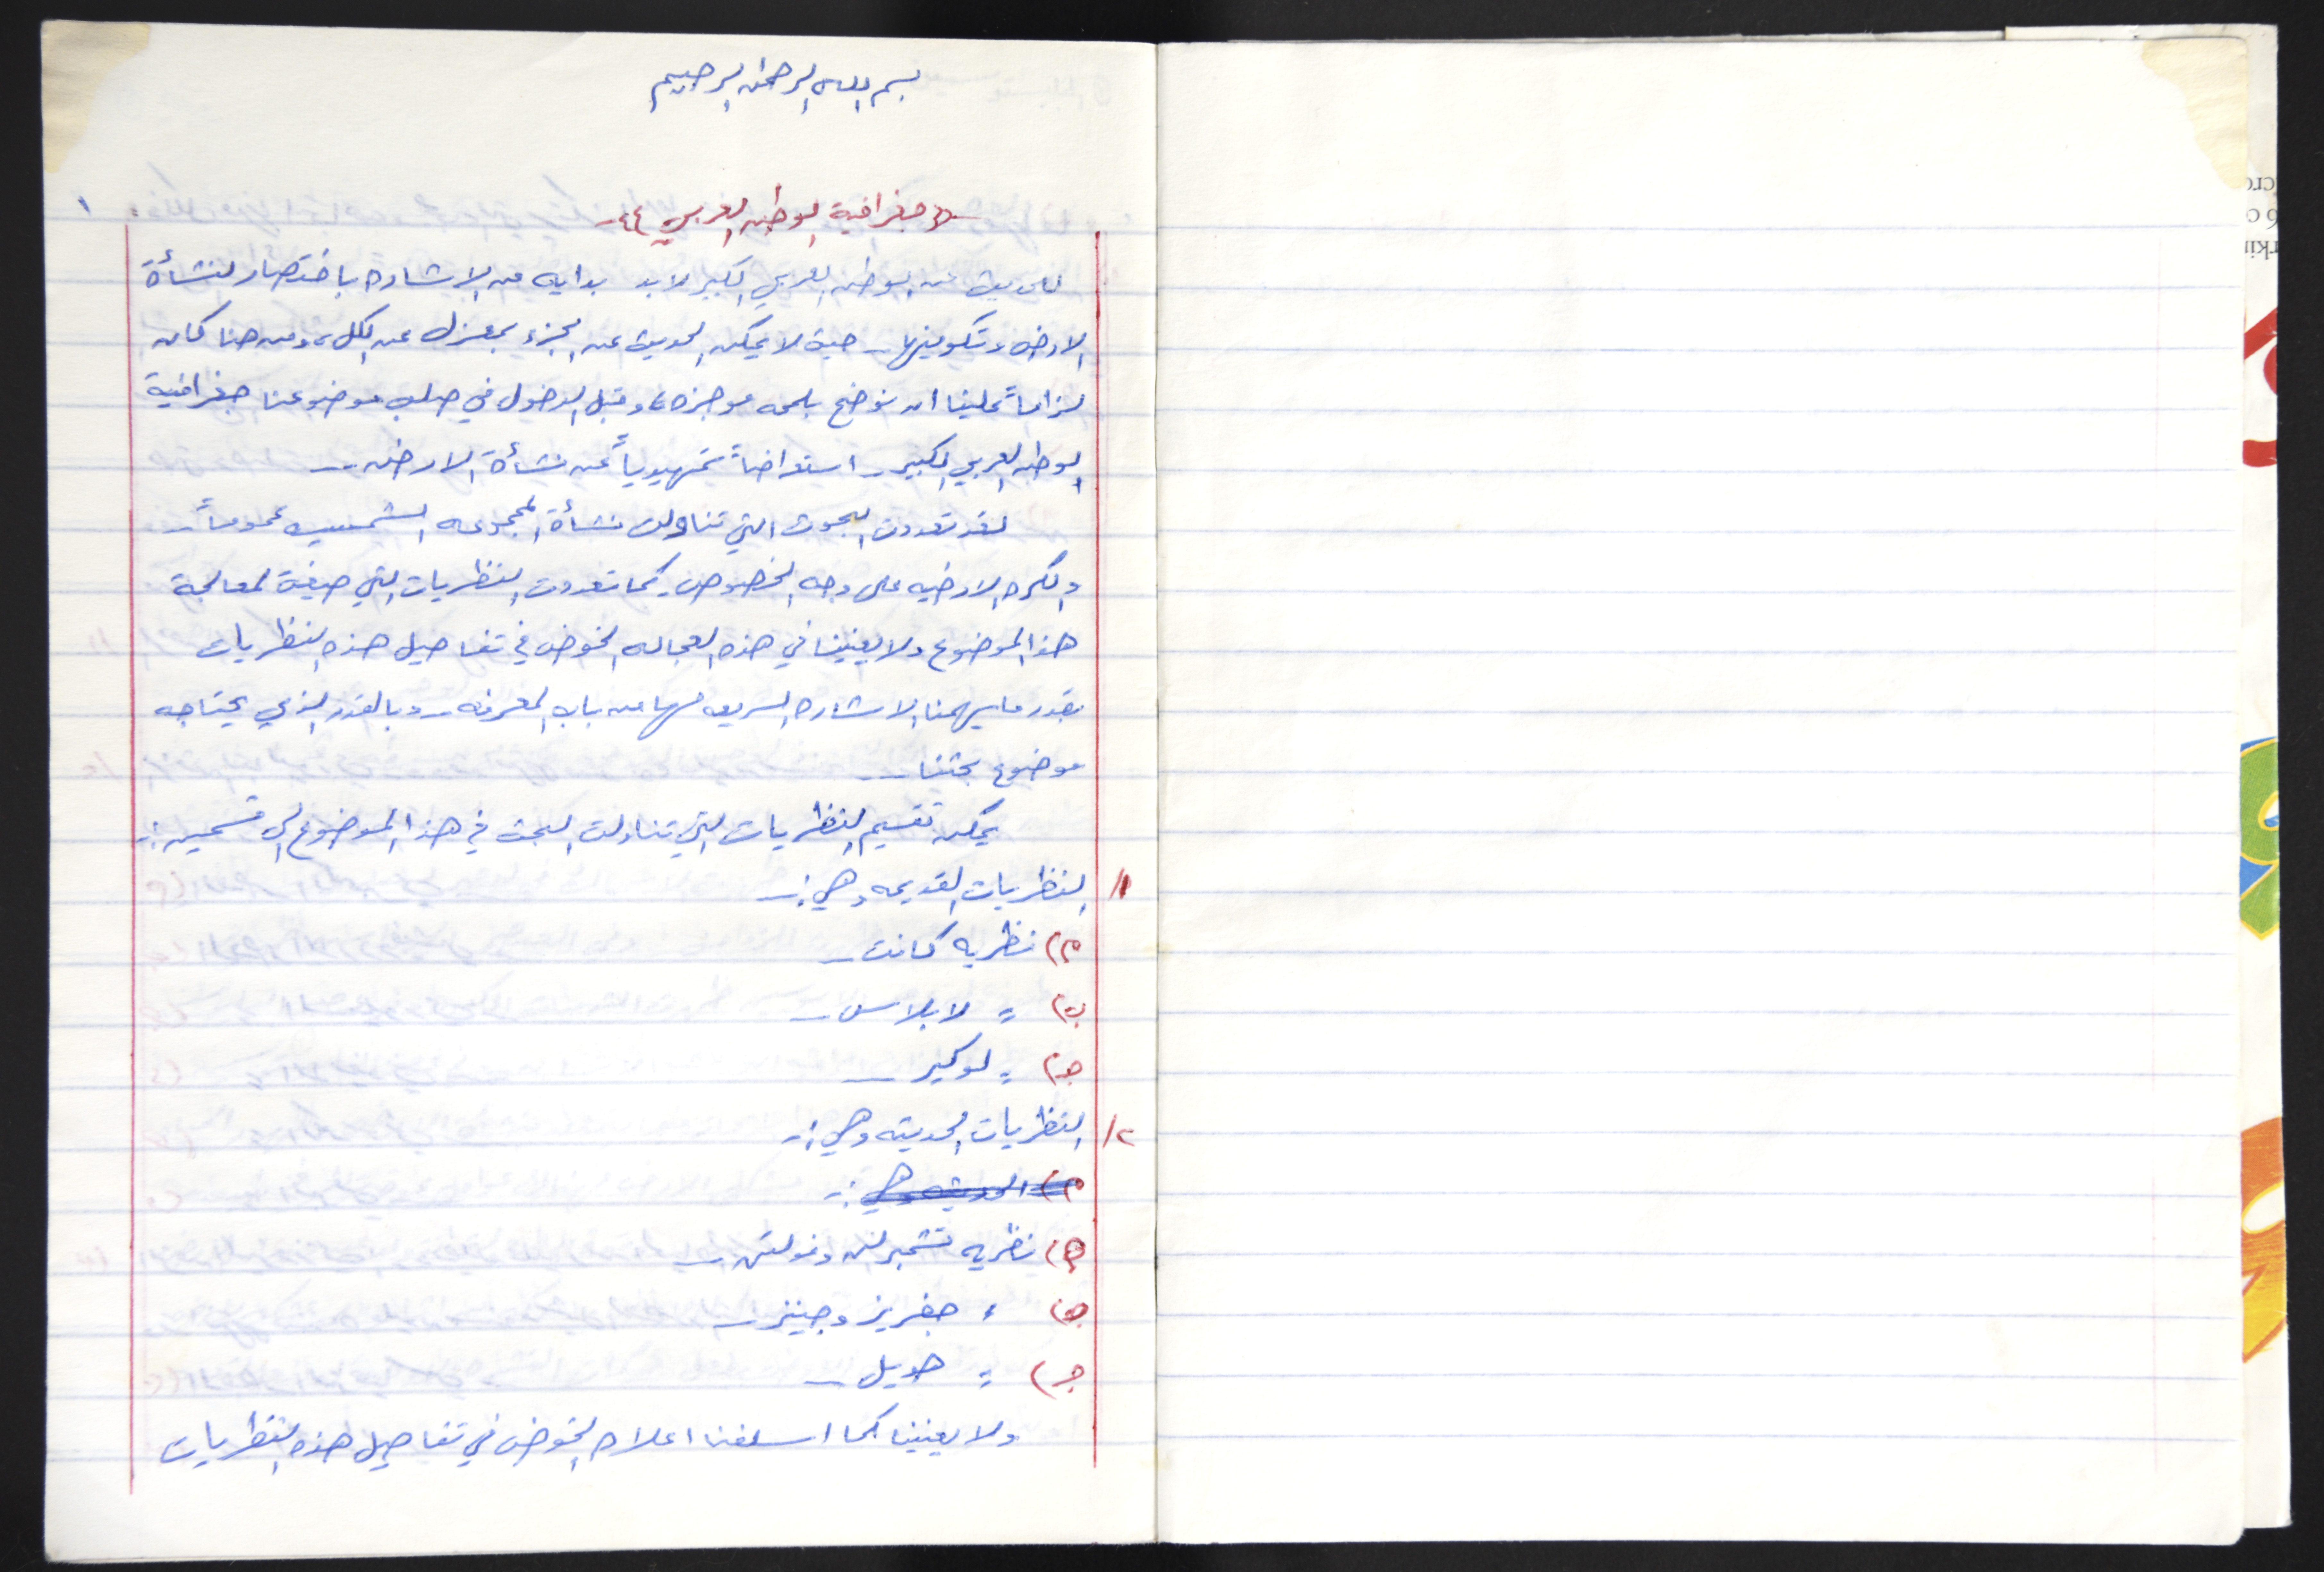 بسم الله الرحمن الرحيم
١
-»» جغرافية الوطن العربي ««-
للحديث عن الوطن العربي الكبير لابد بدايه من الاشاره باختصار لنشأة
الارض وتكوينها - حيث لا يمكن الحديث عن الجزء بمعزل عن الكل، ومن هنا كان
لزاماً علينا ان نوضح بلمحه موجزه، وقبل الدخول في صلب موضوعنا جغرافية
الوطن العربي الكبير - استعراضاً تمهيدياً عن نشأة الارض -
لقد تعددت البحوث التي تناولت نشأة المجموعه الشمسيه عموماً -
والكره الارضيه على وجه الخصوص، كما تعددت النظريات التي صيغت لمعالجة
هذا الموضوع ولا يعنينا في هذه العجاله الخوض في تفاصيل هذه النظريات
بقدر ما يهمنا الاشاره السريعه لها من باب المعرفه - وبالقدر الذي يحتاجه
موضوع بحثنا -
يمكن تقسيم النظريات التي تناولت البحث في هذا الموضوع الى قسمين :-
١/ النظريات القديمه وهي :-
أ) نظريه كانت -
ب) = لابلاس -
ج) = لوكير -
٢/ النظريات الحديثه وهي :-
أ) الحديثه وهي :-
أ) نظريه تشمبرلن ومولتن -
ب) = جفريز وجينز -
ج) = هويل -
ولا يعنينا كما اسلفنا اعلاه الخوض في تفاصيل هذه النظريات